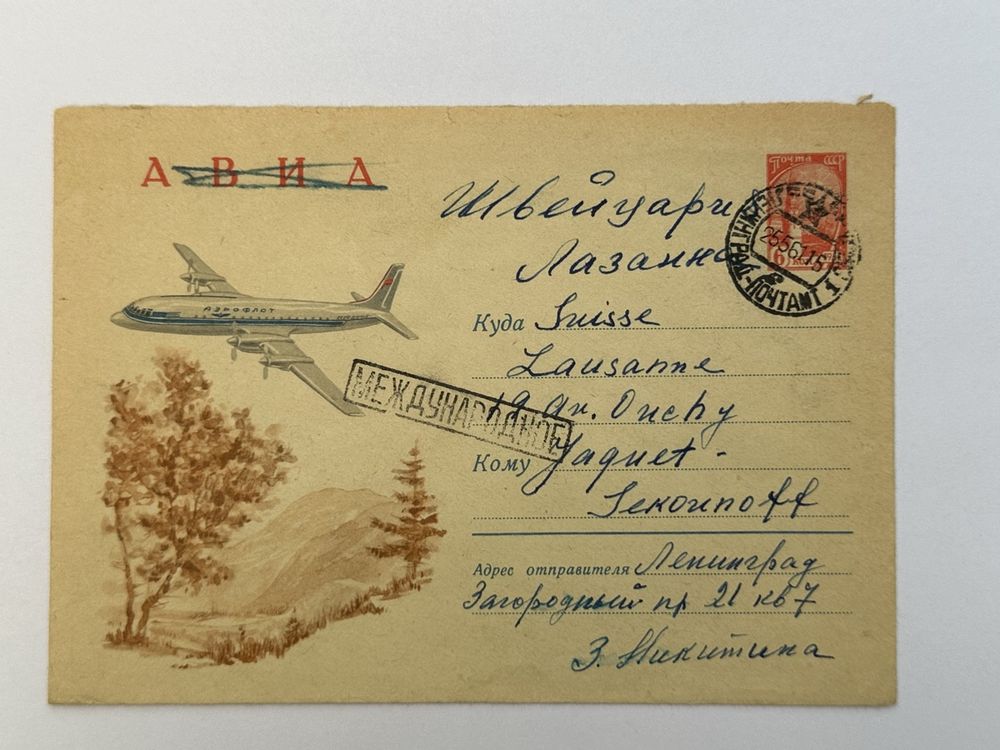 АВИА
Почта СССР
6 коп
ЛЕНИНГРАД-ПОЧТАМТ 1
25561-16
АЭРОФЛОТ
МЕЖДУНАРОДНОЕ
Швейцария
Лазанна
Куда Suisse
Lausanne
19 av. Ouchy
Кому Jaquet -
Адрес отправителя Ленинград
Загородный пр 21 кв 7
З. Никитина